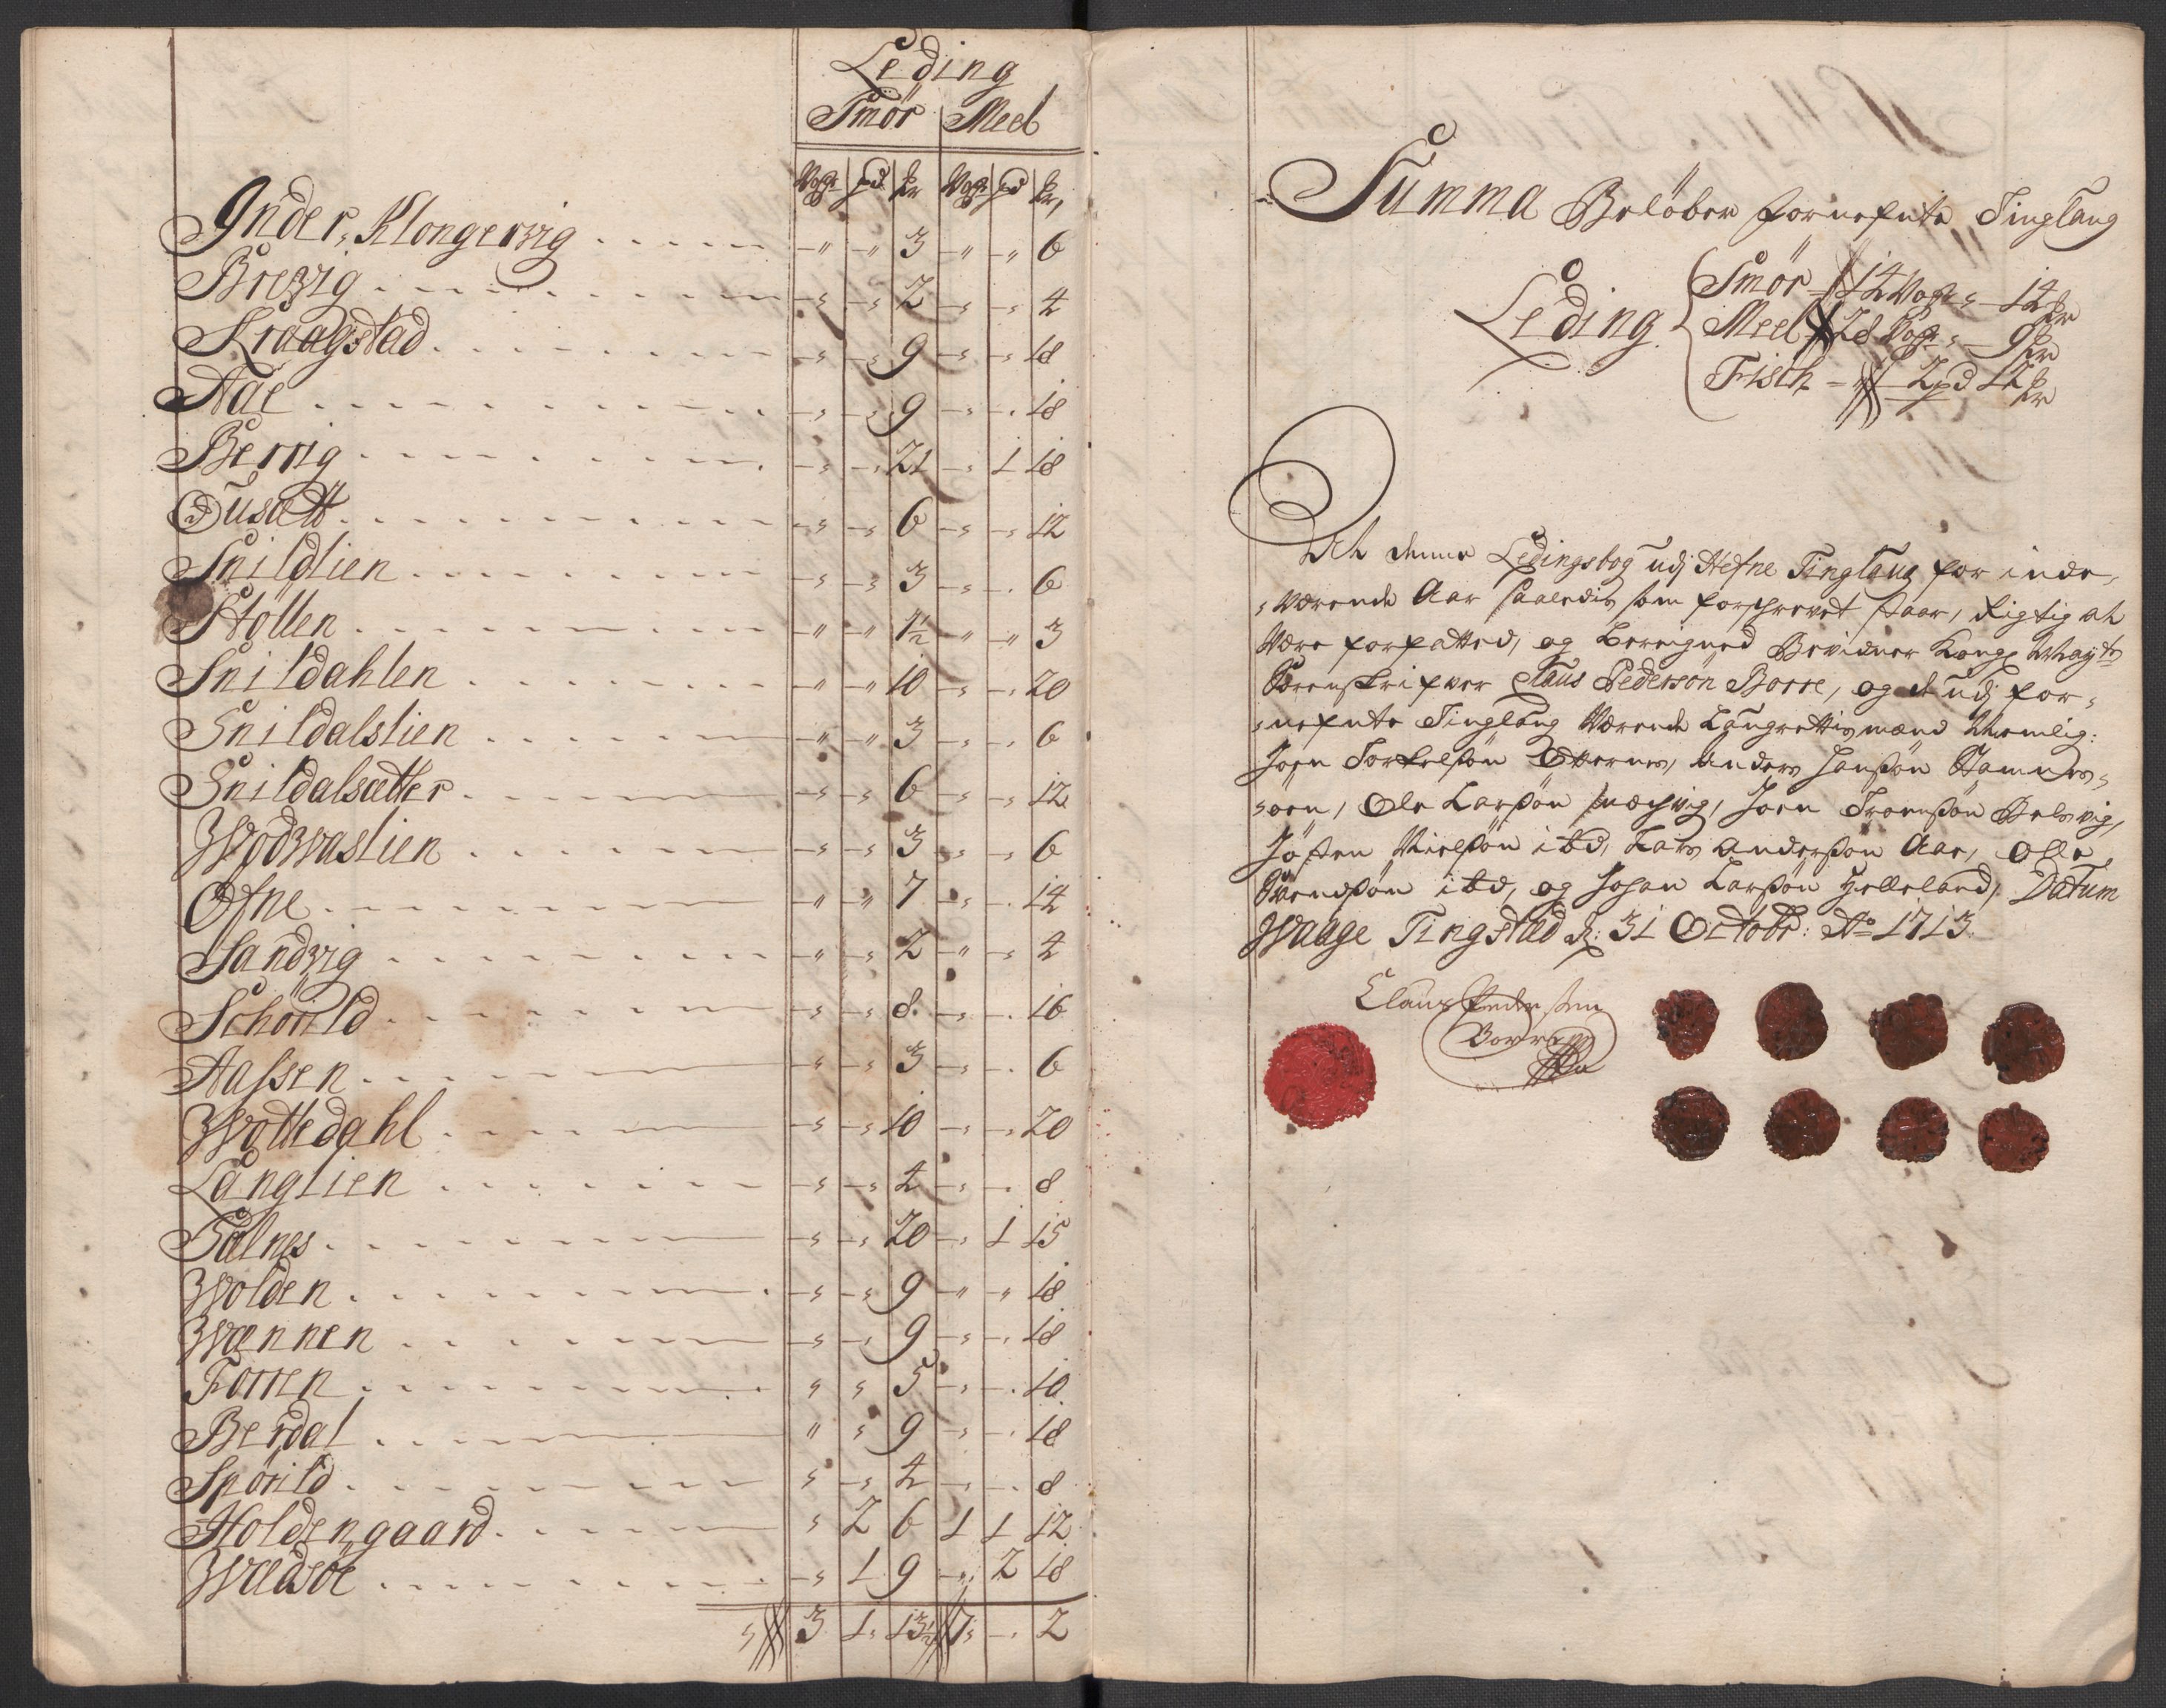 Leding
Smör Meel
Vog pd kr Vog pd kr,
Inder, Klongerwig . . . . . „ „ 3 „ „ 6
Brewig . . . . . „ „ 2 „ „ 4
Kraagstad . . . . . „ „ 9 „ „ 18
Aae . . . . . „ „ 9 „ „ 18
Berrig . . . . . „ „ 21 „ 1 18
Dusætt . . . . . „ „ 6 „ „ 12
Snildlien . . . . . „ „ 3 „ „ 6
Stöllen . . . . . „ „ 1½ „ „ 3
Snildahlen . . . . . „ „ 10 „ „ 20
Snildalslien . . . . . „ „ 3 „ „ 6
Snildalsætter . . . . . „ „ 6 „ „ 12
Wodwaslien . . . . . „ „ 3 „ „ 6
Ofne . . . . . „ „ 7 „ „ 14
Sandwig . . . . . „ „ 2 „ „ 4
Schörild . . . . . „ „ 8 „ „ 16
Aassen . . . . . „ „ 3 „ „ 6
Wottedahl . . . . . „ „ 10 „ „ 20
Langlien . . . . . „ „ 4 „ „ 8
Salnes . . . . . „ „ 20 „ 1 15
Wolden . . . . . „ „ 9 „ „ 18
Wænnen . . . . . „ „ 9 „ „ 18
Forren . . . . . „ „ 5 „ „ 10
Berdal . . . . . „ „ 9 „ „ 18
Spörild . . . . . „ „ 4 „ „ 8
Holdengaard . . . . . „ 2 6 1 1 12
Wædsöe . . . . . „ 1 9 „ 2 18
3 1 13½ 7 „ 2
Summa Belöber fornefnte Tinglaug
Leding Smör 14 Vog „ 14 kr
Meel 28 Vog „ 9 kr
Fisch 2 pd 12 kr
At denne Ledingsbog udj Hefne Tinglaug for inde-
værende Aar saaledis som forschrevet staar, Rigtig at
være forfatted, og beregned Bevidner Kongl Mayts
Sorenskrifver Claus Pedersön Borre, og de udj for-
nefnte Tinglaug Værende Laugrettismænd Nemlig:
Joen Torkelsön Anders Jonsön Hamnes-
, Ole Larsön , Joen Belsvig,
Jösten Nielsön ibd, Lars Andersön Aae, Olle
Svendsön ibd, og Johan Larsön Helleland, Datum
Waage Tingstæd d: 31 Octobr: Ao 1713.
Claus Pedersen
Borre